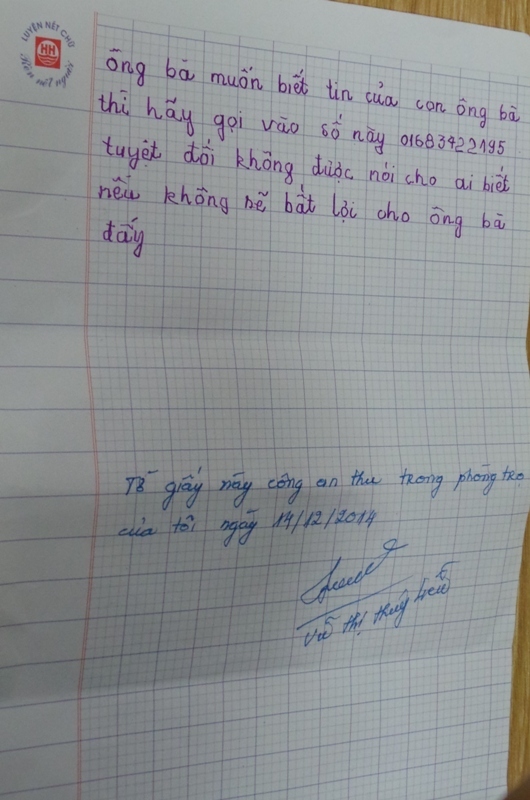 LUYỆN NÉT CHỮ
HH
Rèn nét người
ông bà muốn biết tin của con ông bà
thì hãy gọi vào số này 01683422195
tuyệt đối không được nói cho ai biết
nếu không sẽ bất lợi cho ông bà
đấy
Tờ giấy này công an thu trong phòng trọ
của tôi ngày 14/12/2014
Vũ thị thuý